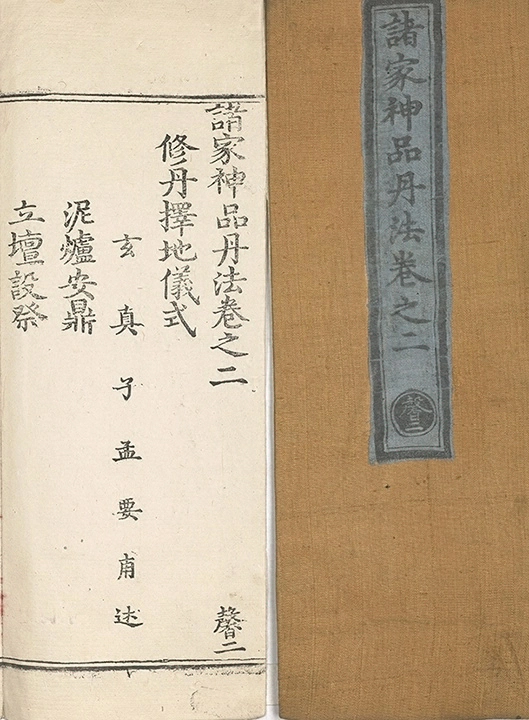 諸家神品丹法卷之二
馨二
諸家神品丹法卷之二 馨二
修丹擇地儀式
玄真子孟要甫述
泥爐安鼎
立壇設祭